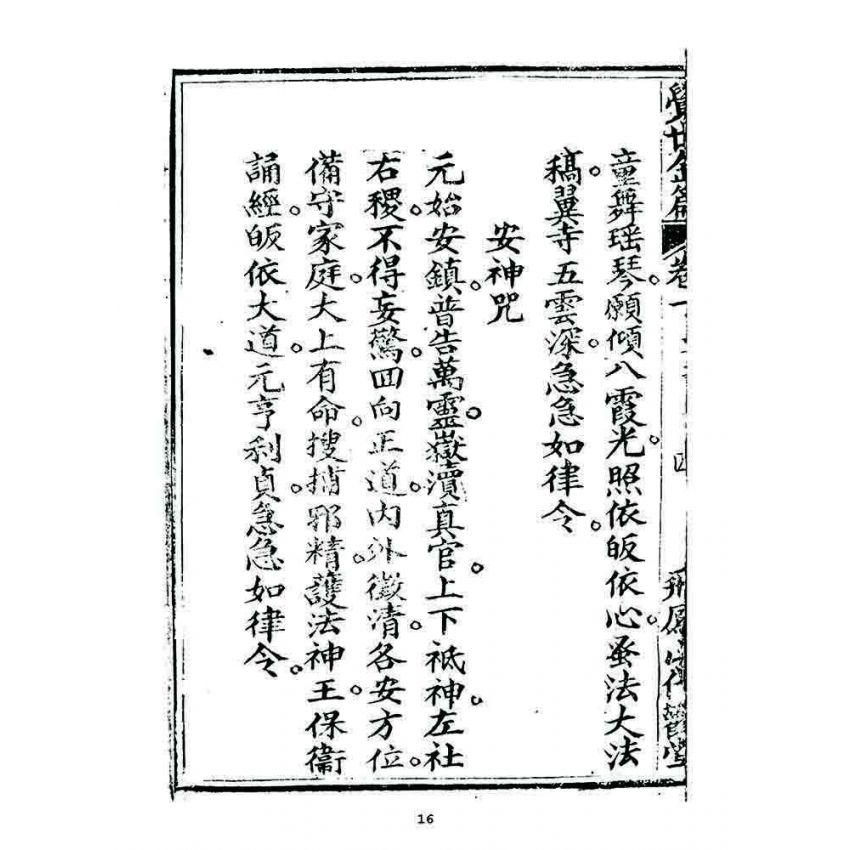 覺世金篇 卷一
童舞瑶琴。願傾八霞光。照依皈依心。蚤法大法
稿。翼寺五雲深。急急如律令。
安神咒
元始安鎮。普告萬靈。嶽瀆真官。上下祗神。左社
右稷。不得妄驚。囬向正道。内外徵清。各安方位。
備守家庭。大上有命。搜捕邪精。護法神王。保衛
誦經。皈依大道。元亨利貞。急急如律令。
16